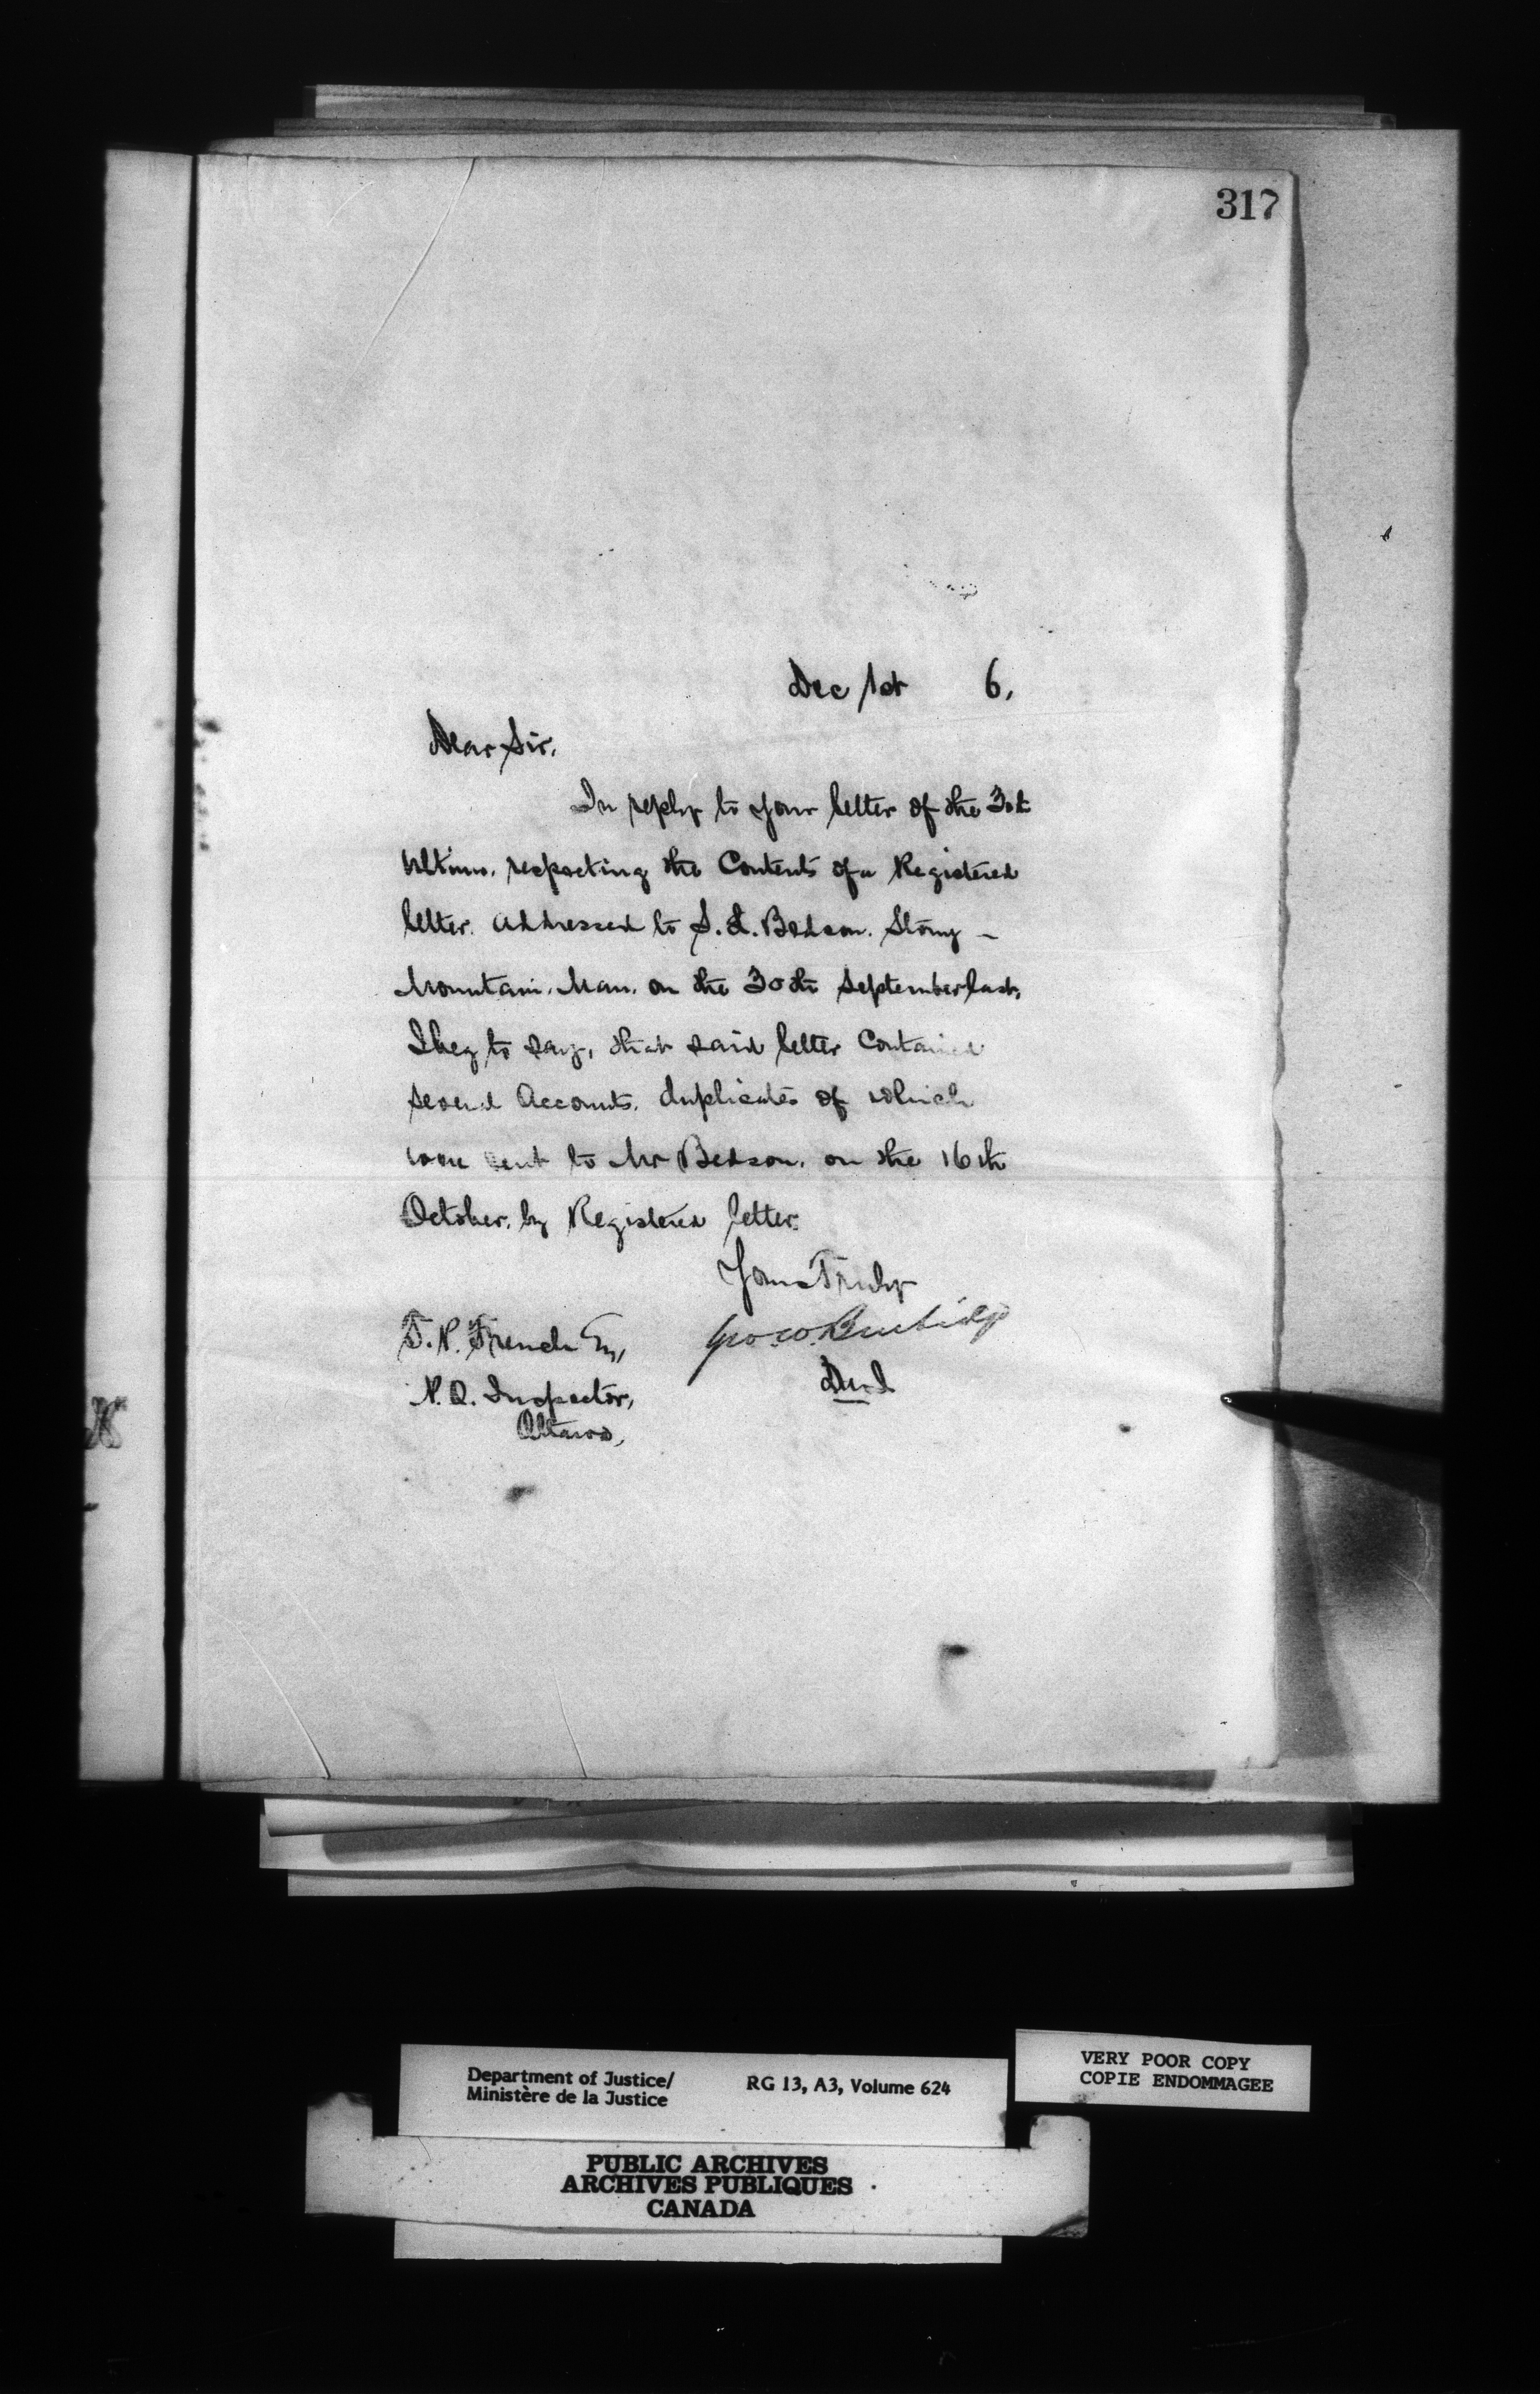 317
Dec 1st 6.
Dear Sir,
In reply to your letter of the 30th
Ultimo, respecting the Contents of a Registered
letter addressed to S. L. Bedson, Stony -
Mountain, Man. on the 30th September last,
I beg to say, that said letter Contained
several Accounts, duplicates of which
were sent to Mr Bedson, on the 16th
October, by Registered letter.
Yours Truly
Geo. W. Burbidge
T. P. French Esq,
P. O. Inspector,
Ottawa,
Department of Justice/ RG 13, A3, Volume 624
Ministère de la Justice
VERY POOR COPY
COPIE ENDOMMAGEE
PUBLIC ARCHIVES
ARCHIVES PUBLIQUES
CANADA